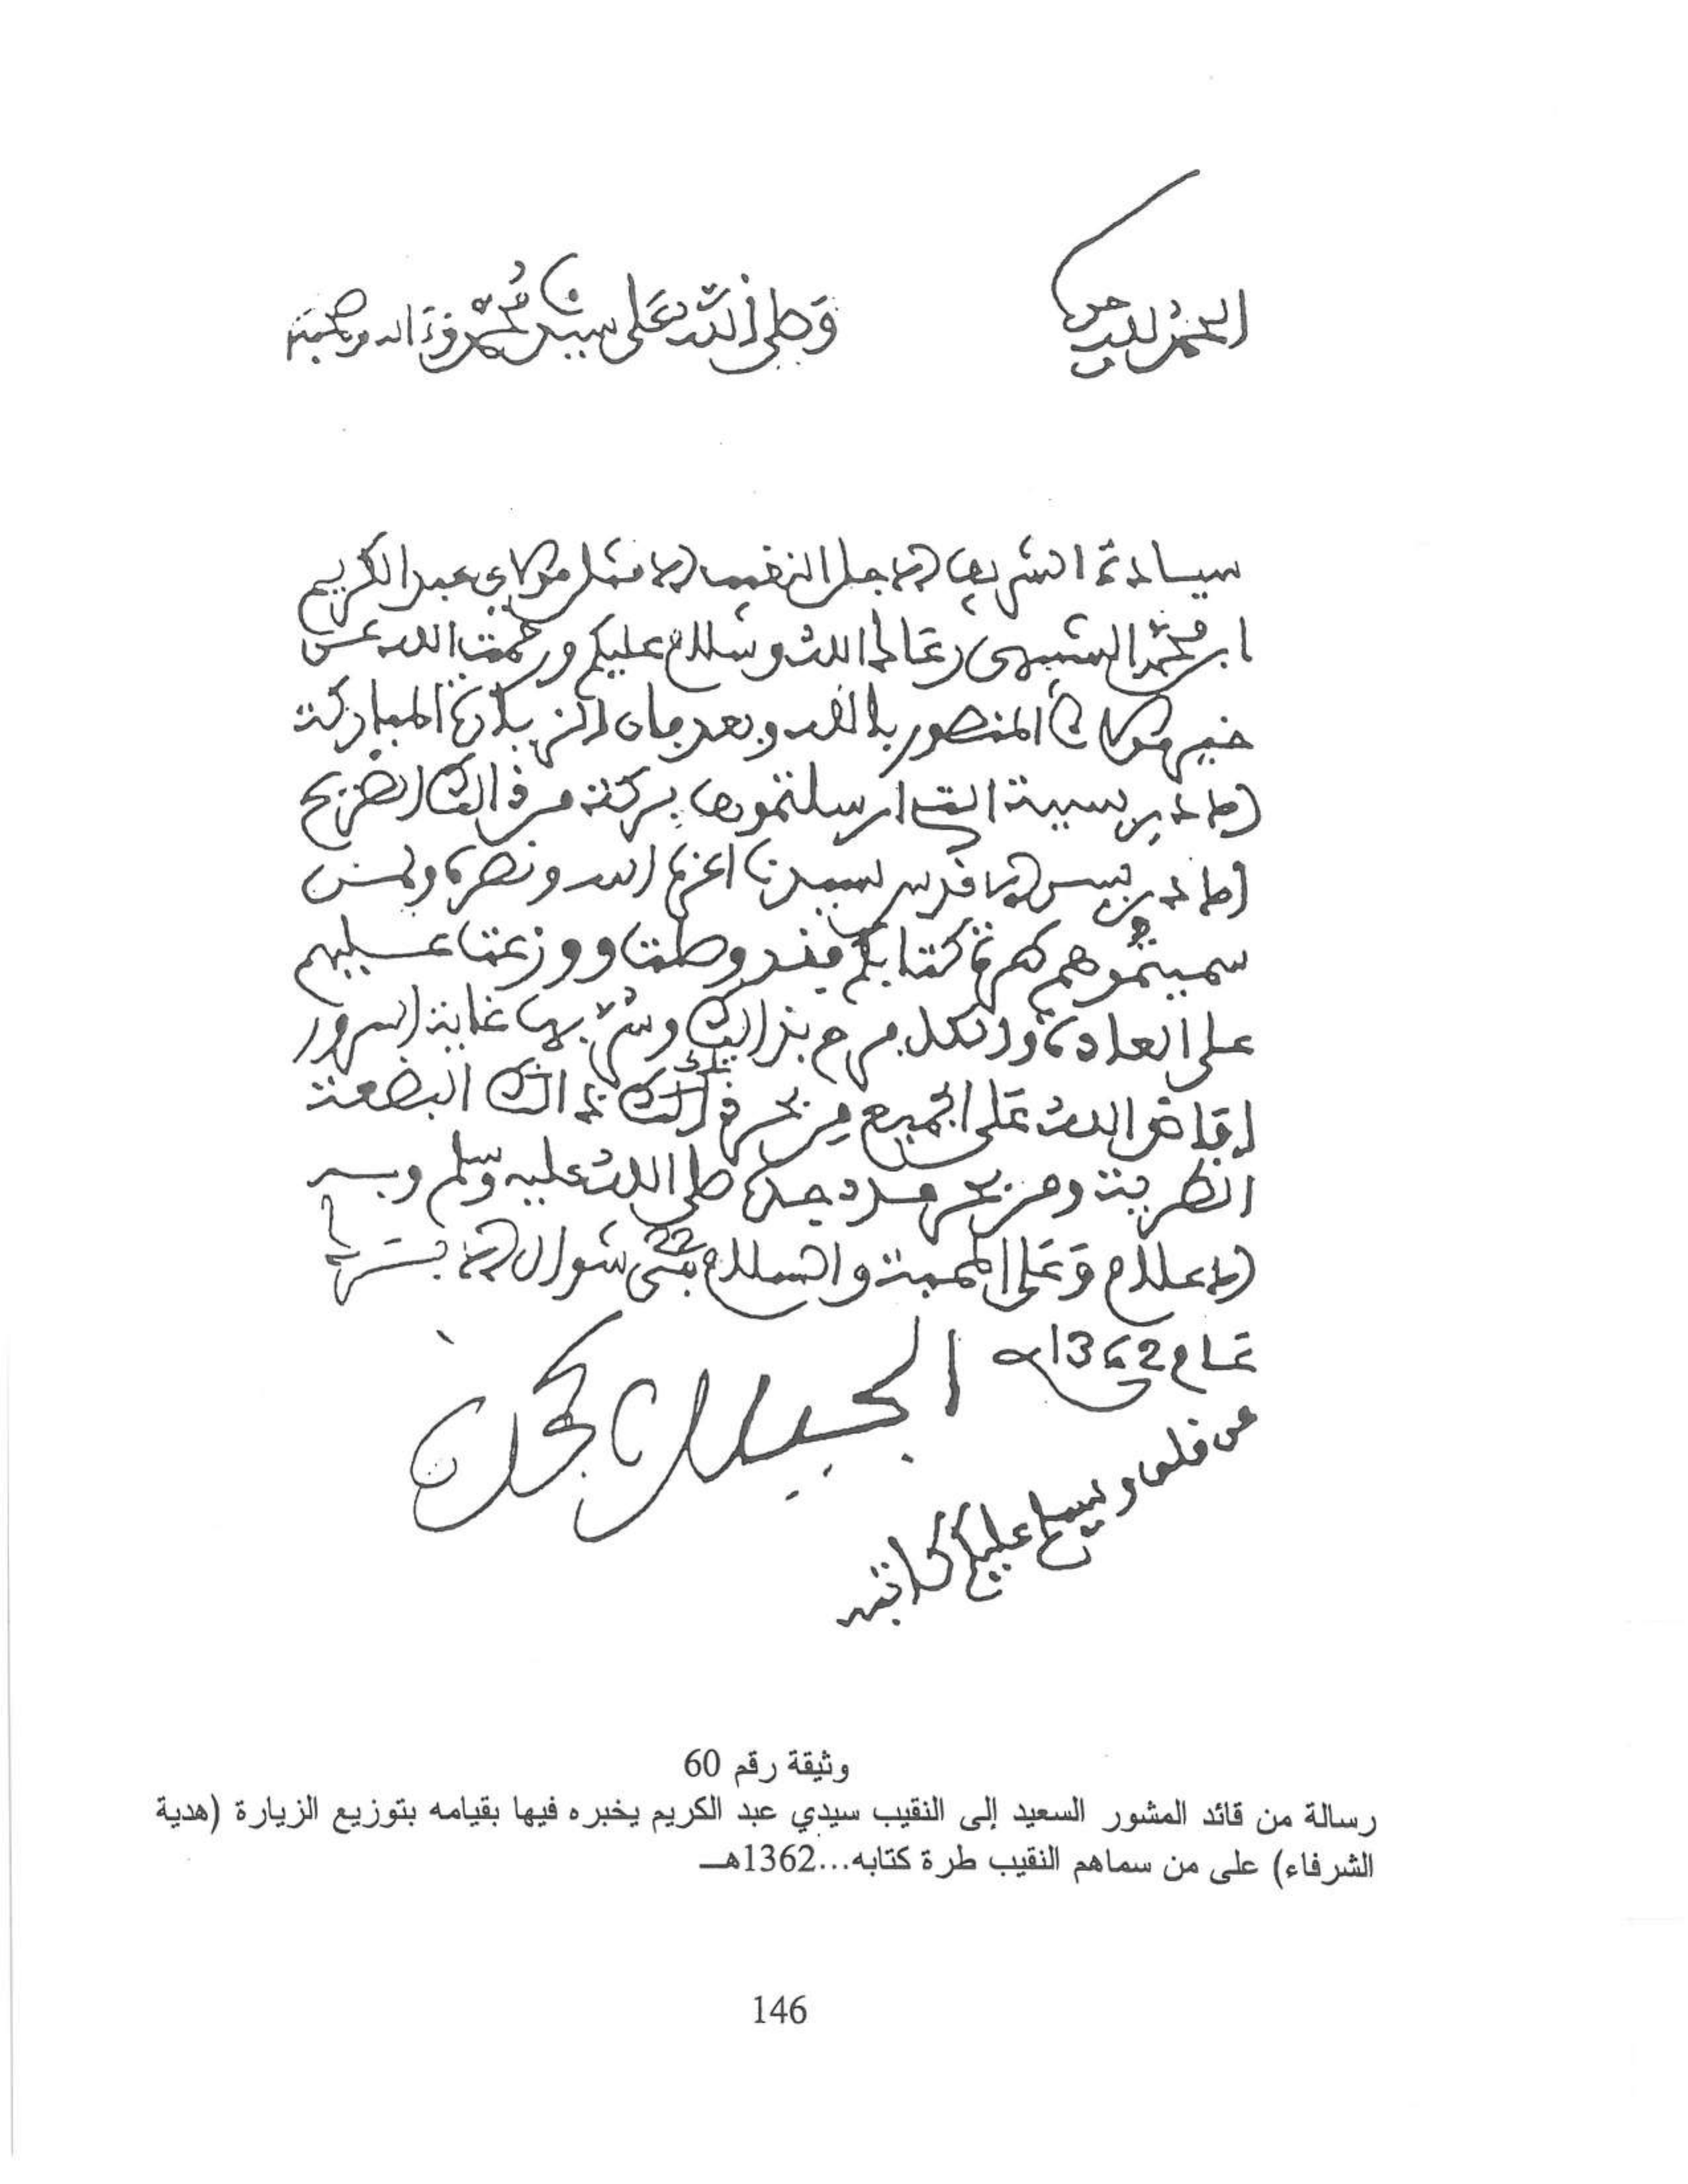 الحمد لله وحده
وصلى الله على سيدنا محمد وءاله وصحبه
سيادة الشريف الاجل النقيب الامثل مولاي عبد الكريم
ابن محمد الشبيهى رعاك الله وسلام عليكم ورحمت الله عن
خير مولانا المنصور بالله وبعد فان الزيارة المباركة
الادريسية التي ارسلتموها بركة من ذالك الضريح
الادريسى الاقدس لسيدنا اعزه الله ونصره ولمن
سميتموهم طرة كتابكم قد وصلت ووزعت عليهم
على العادة والكل فرح بذالك وسر بها غاية السرور
افاض الله على الجميع من بحر بركة تلك البضعة
الطهرية ومن بحر مدد جدها صلى الله عليه وسلم وبه
الاعلام وعلى المحبة والسلام في 22 شوال الابرك
عام 1362
عن قلمه ويسلم عليكم كاتبه
وثيقة رقم 60
رسالة من قائد المشور السعيد إلى النقيب سيدي عبد الكريم يخبره فيها بقيامه بتوزيع الزيارة (هدية
الشرفاء) على من سماهم النقيب طرة كتابه...1362هـ
146